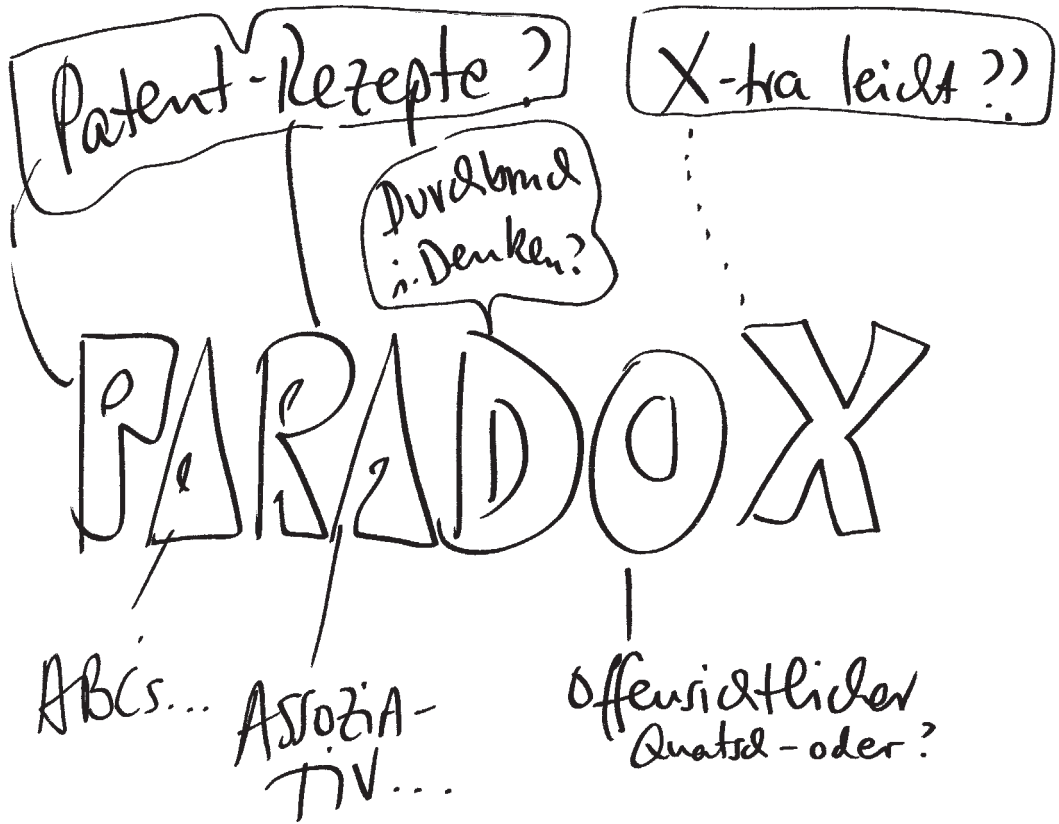 Patent-Rezepte?
X-tra leicht??
Durchbruch
i. Denken?
PARADOX
ABCs...
ASSOZIA-
TIV....
Offensichtlicher
Quatsch-oder?